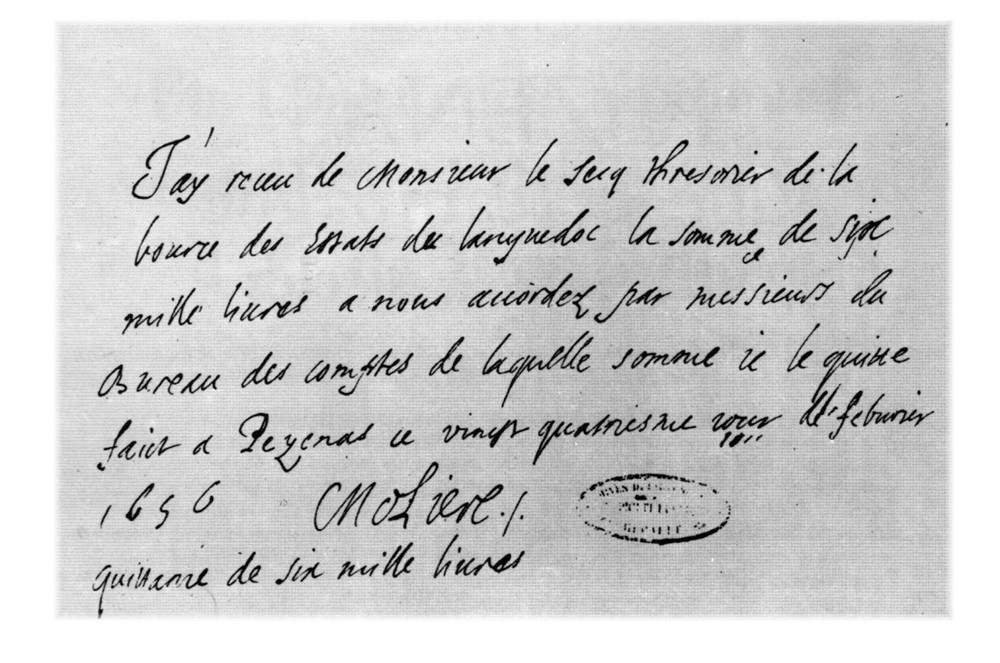 J'ay receu de Monsieur le Secq thresorier de la
bource des Estats du languedoc la somme de six
mille liures a nous accordez par messieurs du
Bureau des comptes de laquelle somme ie le quitte
faict a Pezenas ce vingt quatriesme iour de febvrier
1656 Moliere
quittance de six mille liures